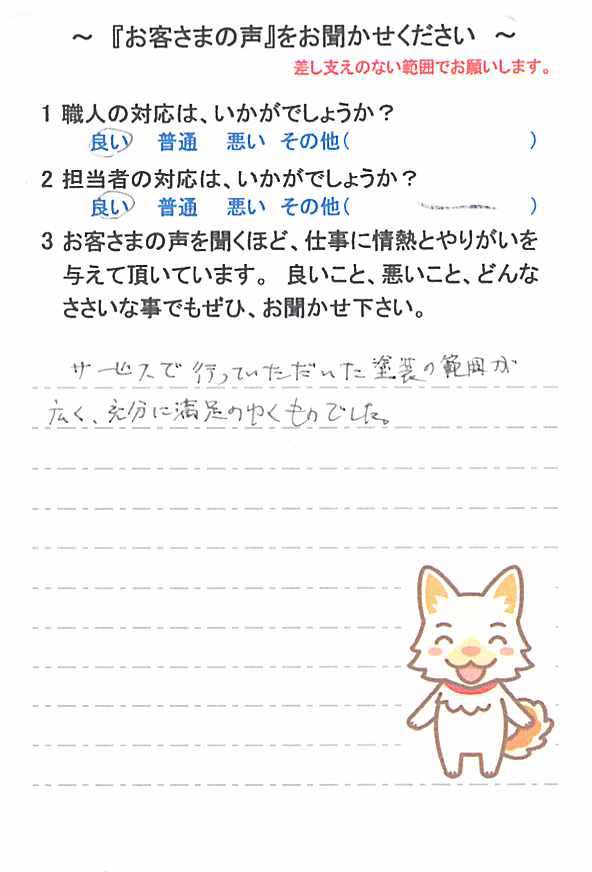 ～ 『お客さまの声』をお聞かせください ～
差し支えのない範囲でお願いします。
1 職人の対応は、いかがでしょうか？
良い 普通 悪い その他( )
2 担当者の対応は、いかがでしょうか？
良い 普通 悪い その他( )
3 お客さまの声を聞くほど、仕事に情熱とやりがいを
与えて頂いています。 良いこと、悪いこと、どんな
ささいな事でもぜひ、お聞かせ下さい。
サービスで行っていただいた塗装の範囲が
広く、充分に満足のゆくものでした。